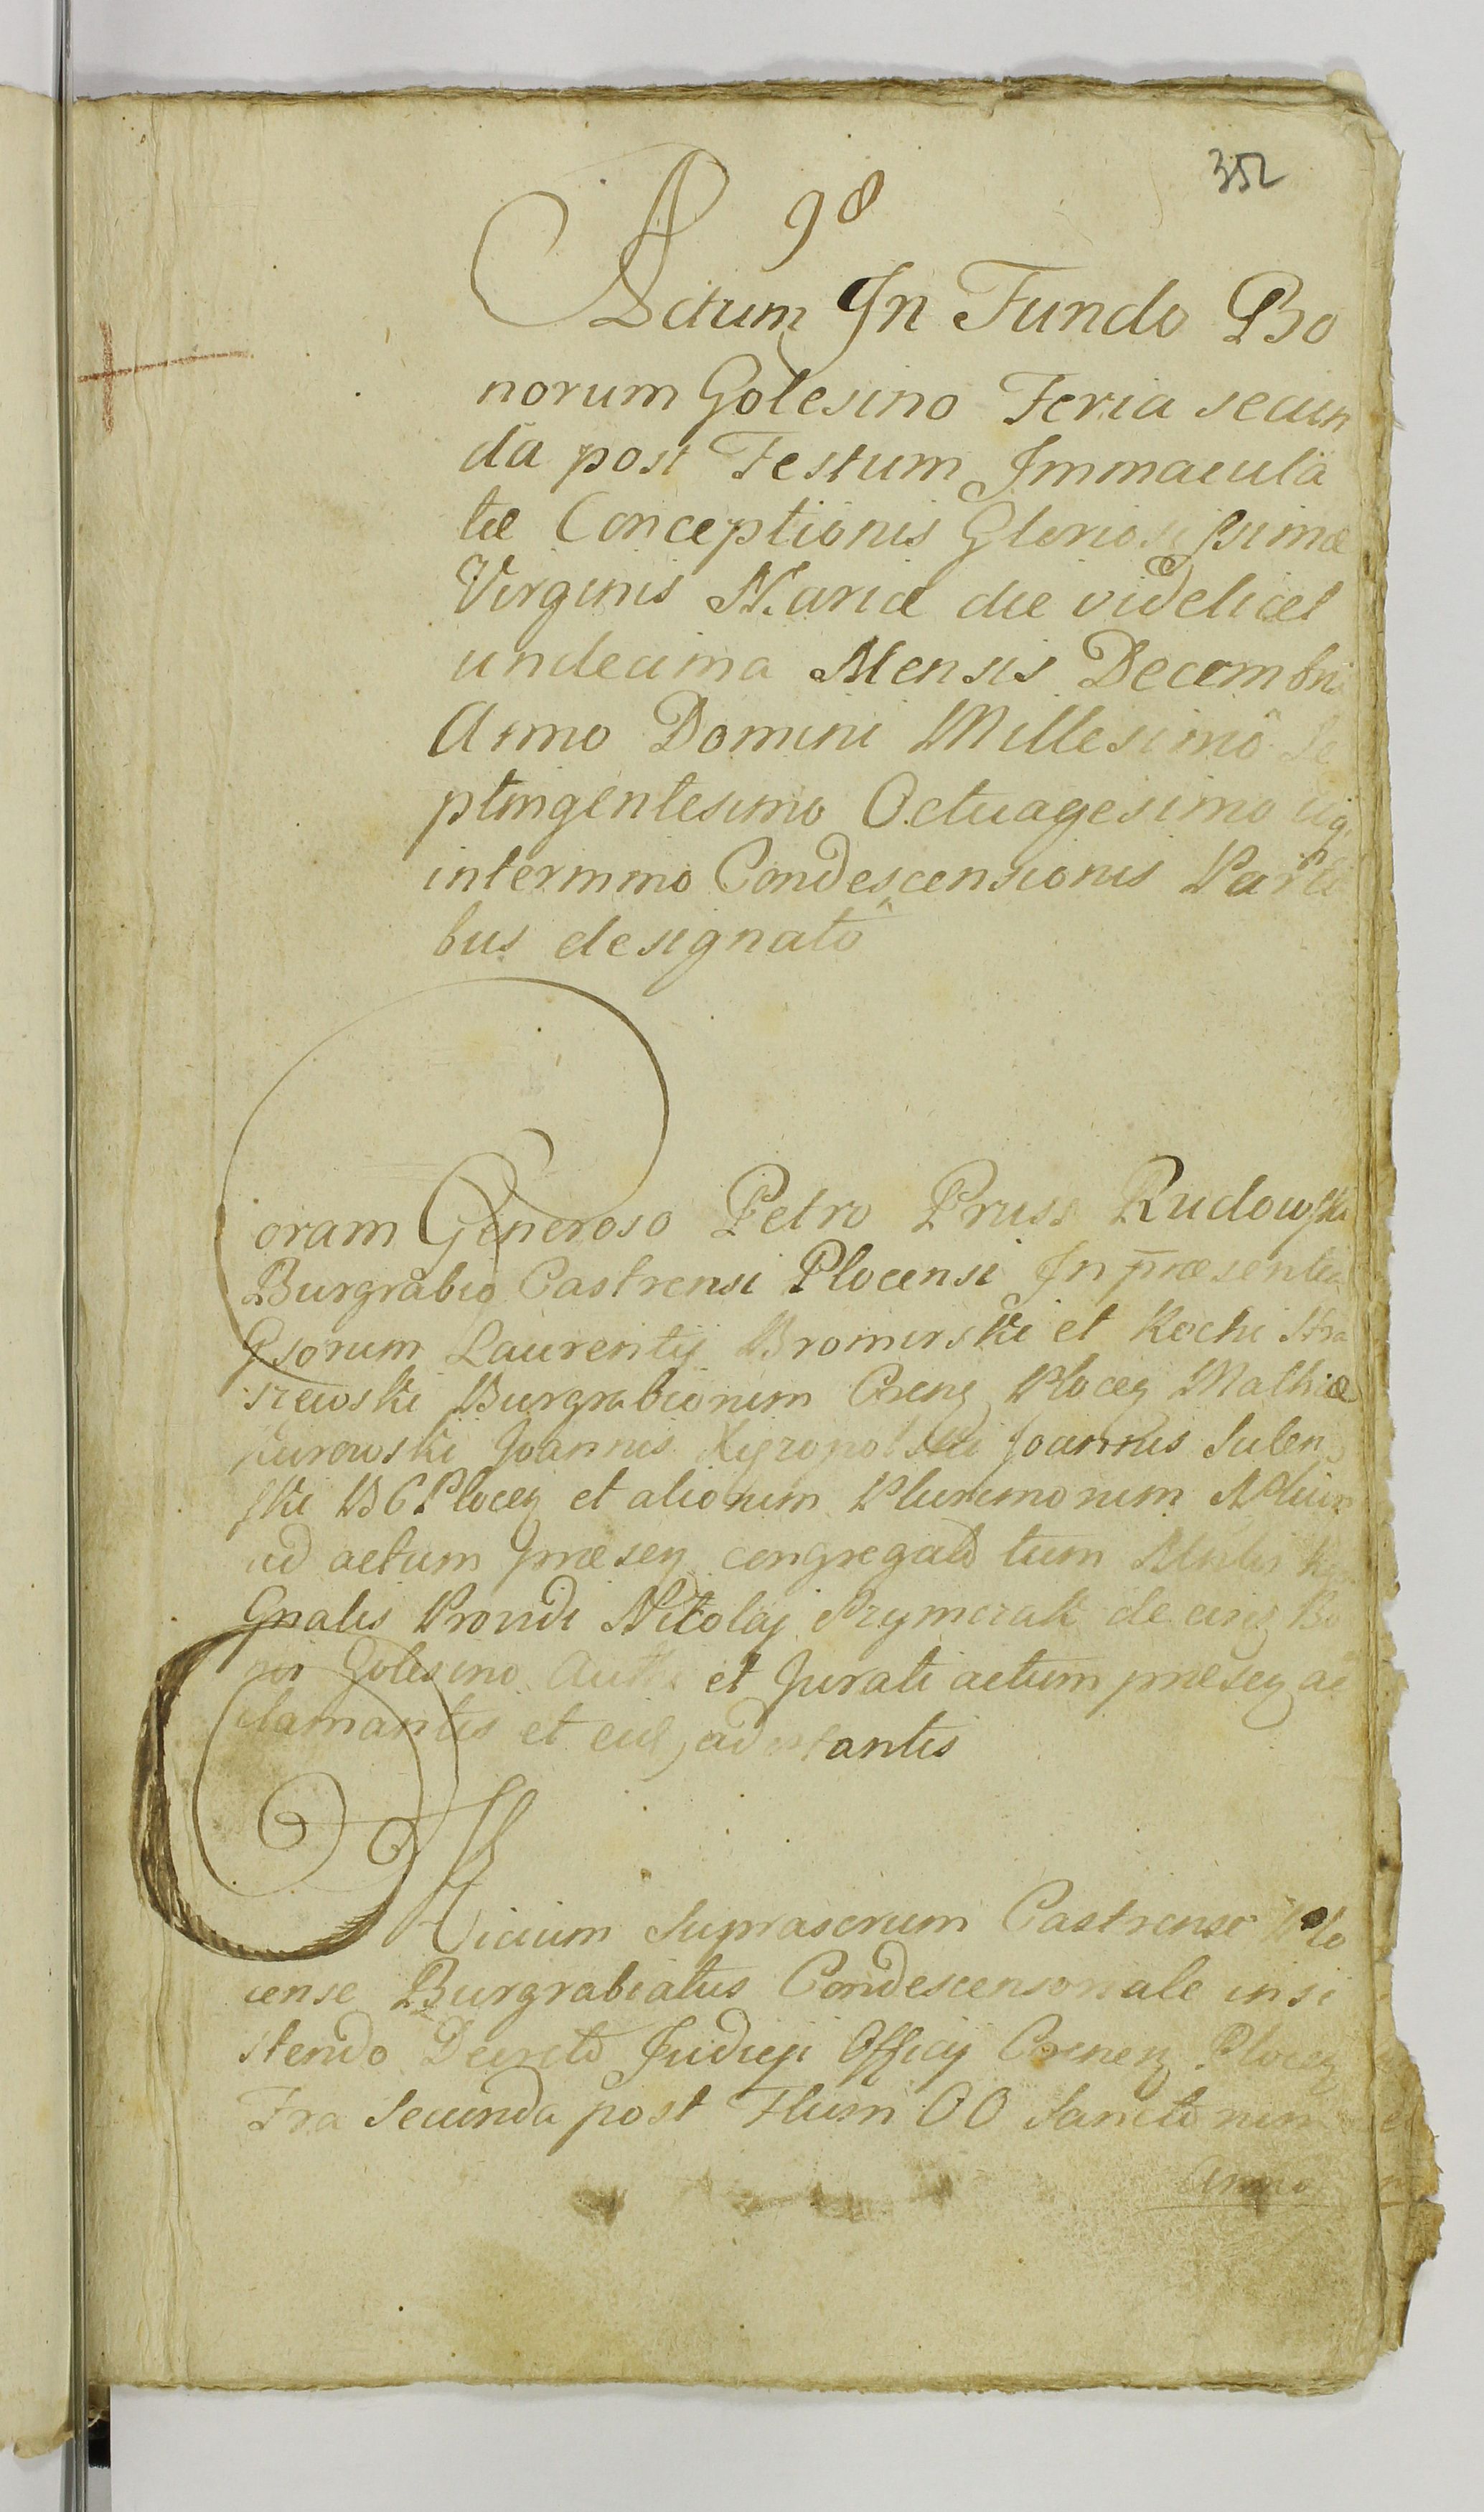 352
98
Actum In Fundo Bo
norum Golesino Feria secun
da post Festum Immacula
tæ Conceptionis Gloriosissimæ
Virginis Mariæ die videlicet
undecima Mensis Decembris
Anno Domini Millesimo Se
ptingentesimo Octuagesimo
intermino Condescensionis Parti
bus designato
Coram Generoso Petro Pruss Rudowski
Burgrabio Castrensi Plocensi In præsentia
Gsorum Laurentij Bromirski et Rochi Stra
szewski Burgrabiorum CrengPloceg Mathiæ
Joannis Joannis Sulen
ski B C Ploceg et aliorum Plurimorum
ad actum præseg congregato tum
Gnalis Providi Nikolaj Szymczak de
Golesino et Jurati actum præseg ac
clamantis et
Officium Suprascrum Castrense Plo
cense Burgrabiatus Condescensonale insi
stendo Decreto Judicij Officij Creneg Ploceg
Fra Secunda post Ftum OO Sanctorum
Anno